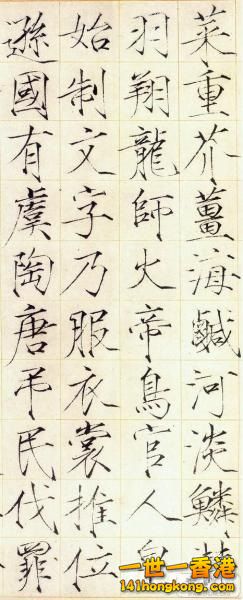 菜重芥薑海鹹河淡鱗
羽翔龍師火帝鳥官人皇
始制文字乃服衣裳推位
遜國有虞陶唐吊民伐罪
一世一香港
141hongkong.com